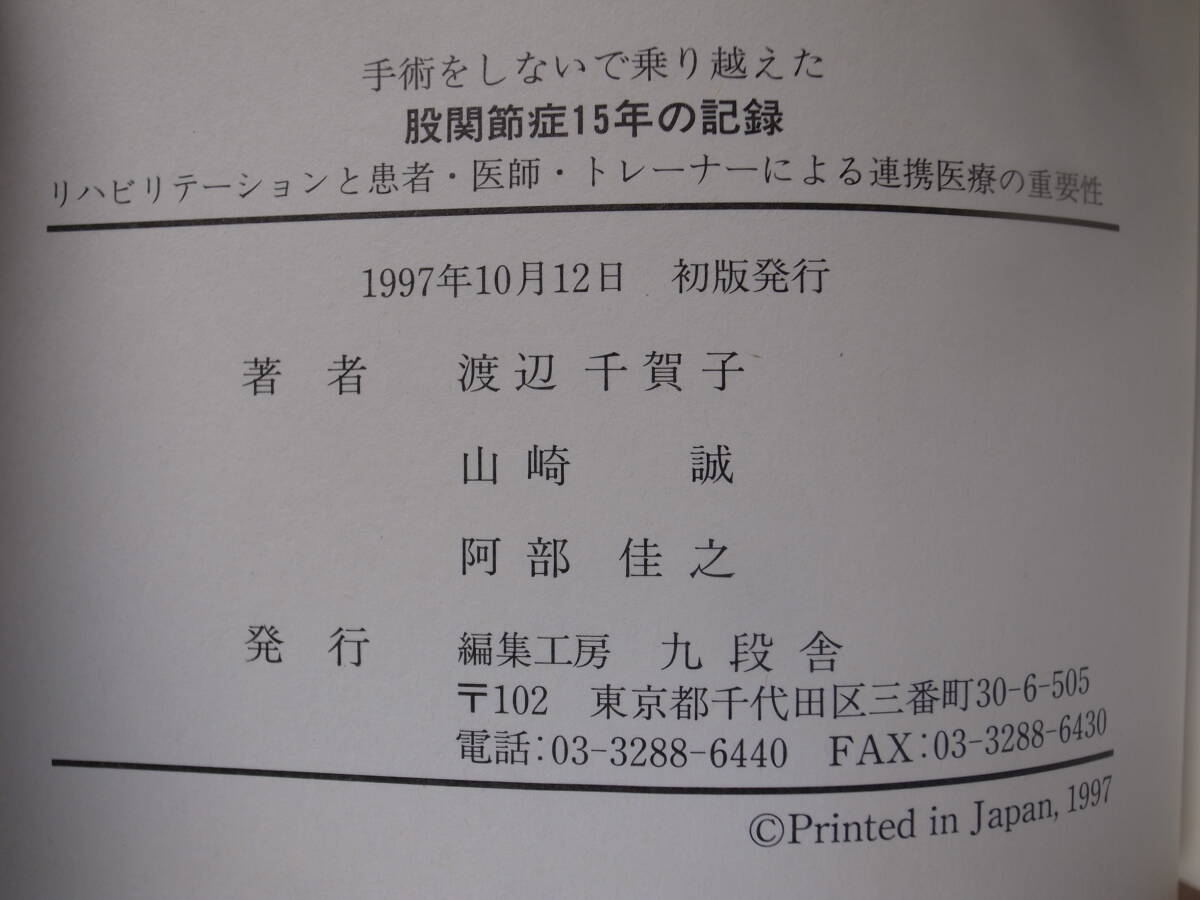 手術をしないで乗り越えた
股関節症15年の記録
リハビリテーションと患者・医師・トレーナーによる連携医療の重要性
1997年10月12日　初版発行
著　者　渡辺 千賀子
山崎　　誠
阿部　佳之
発　行　編集工房　九段舎
〒102　東京都千代田区三番町30-6-505
電話:03-3288-6440　FAX:03-3288-6430
©Printed in Japan, 1997